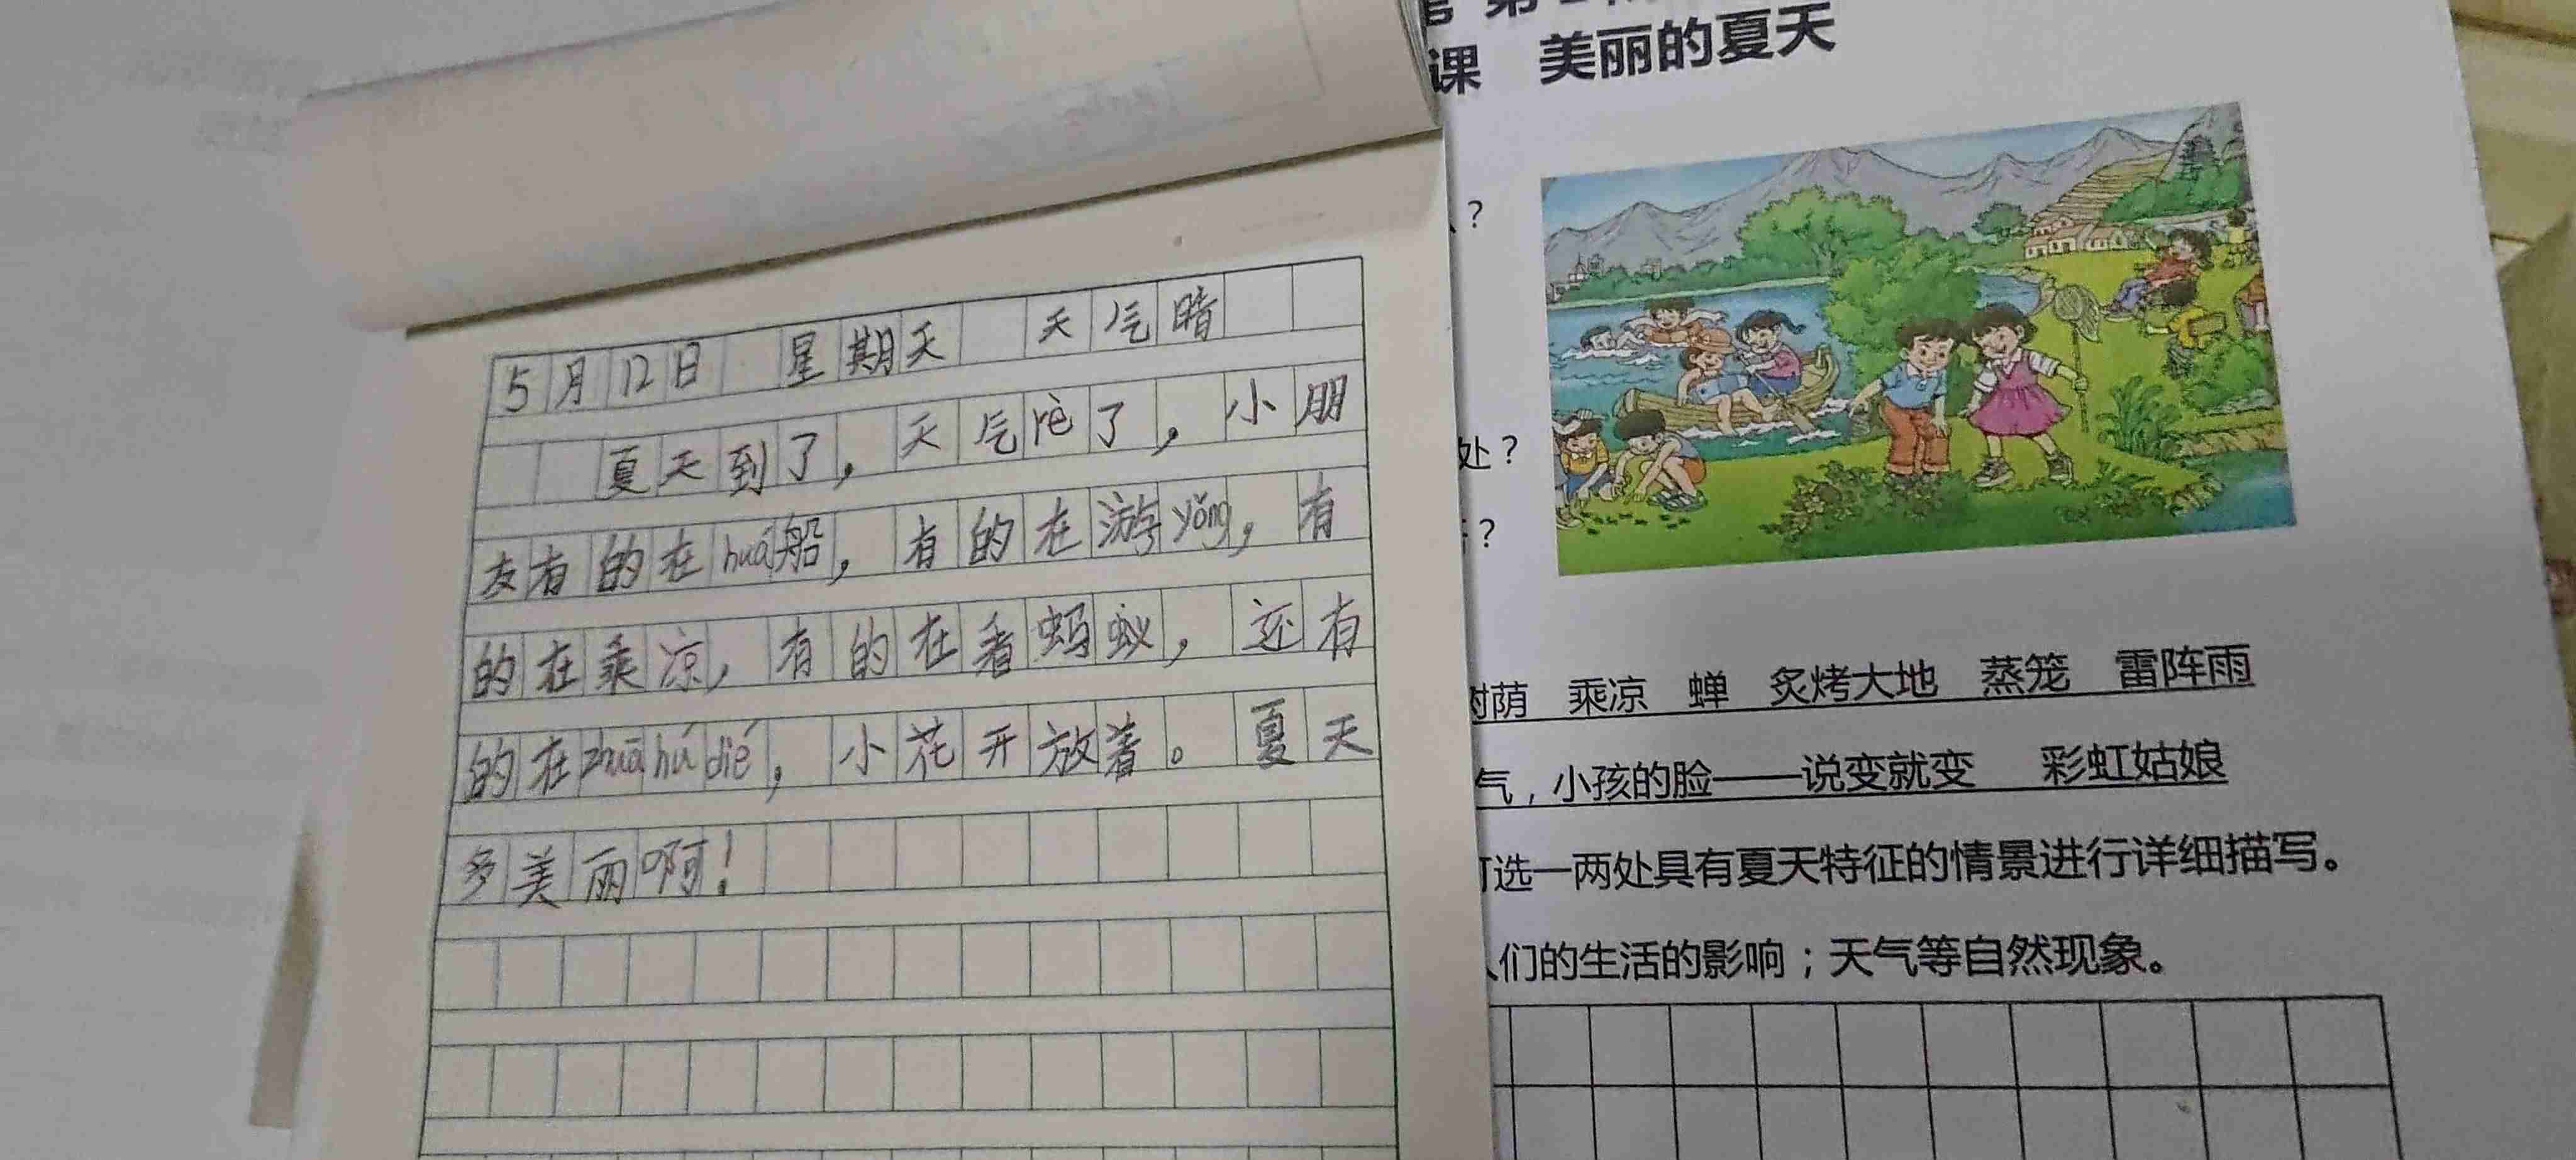 5月12日 星期天 天气晴
夏天到了，天气rè了，小朋
友有的在huá船，有的在游yǒng，有
的在乘凉，有的在看蚂蚁，还有
的在zhuā hú dié，小花开放着。夏天
多美丽啊！
课 美丽的夏天
？
处？
？
树荫 乘凉 蝉 炙烤大地 蒸笼 雷阵雨
气，小孩的脸——说变就变 彩虹姑娘
选一两处具有夏天特征的情景进行详细描写。
人们的生活的影响；天气等自然现象。